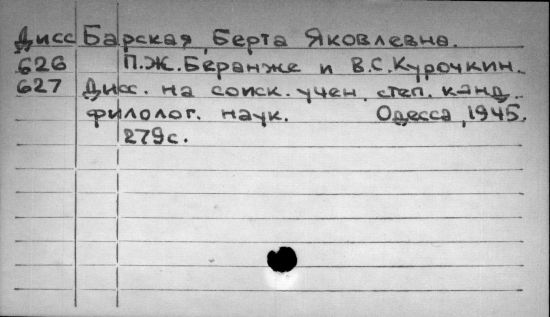 Дисс Барская, Берта Яковлевна.
626 П.Ж.Беранже и В.С.Курочкин.
627 Дисс. на соиск. учен. степ. канд.
филолог. наук. Одесса, 1945.
279с.